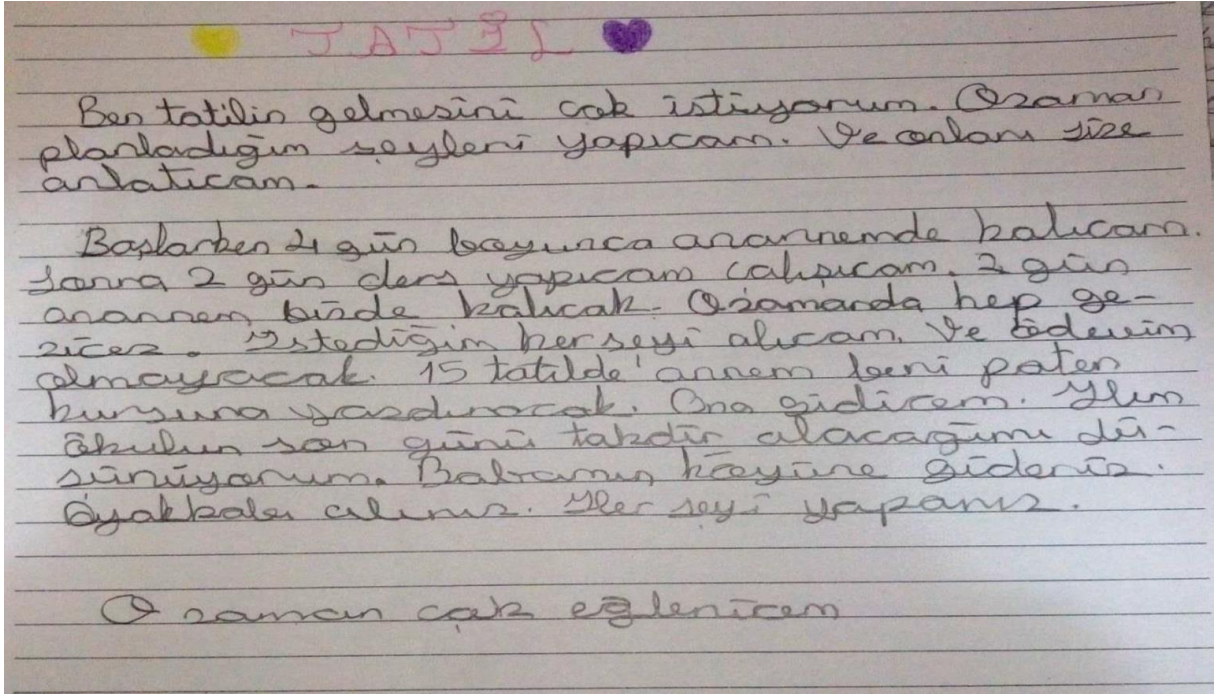 TATİL
Ben tatilin gelmesini çok istiyorum. Ozaman
planladığım şeyleri yapıcam. Ve onları size
anlatıcam.
Başlarken 4 gün boyunca anannemde kalıcam.
Sonra 2 gün ders yapıcam çalışıcam. 2 gün
anannem bizde kalıcak. Ozamanda hep ge-
zicez. İstediğim herşeyi alıcam. Ve ödevim
olmayacak. 15 tatilde annem beni paten
kursuna yazdıracak. Ona gidicem. Hem
okulun son günü takdir alacağımı dü-
şünüyorum. Babamın köyüne gideriz.
Ayakkabı alırız. Her şeyi yaparız.
O zaman çok eğlenicem